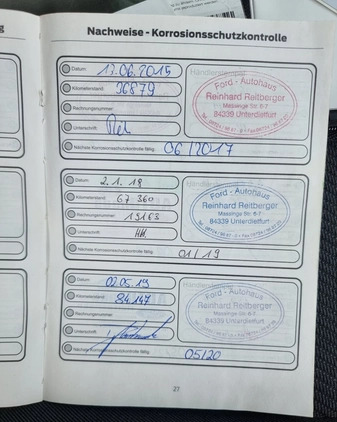 g
Nachweise - Korrosionsschutzkontrolle
Datum: 17.06.2015
Kilometerstand: 36879
Rechnungsnummer:
Unterschrift:
Nächste Korrosionsschutzkontrolle fällig: 06/2017
Händlerstempel
Ford - Autohaus
Reinhard Reitberger
Massinge Str. 6-7
84339 Unterdietfurt
Datum: 2.1.18
Kilometerstand: 67360
Rechnungsnummer: 19163
Unterschrift:
Nächste Korrosionsschutzkontrolle fällig: 01/19
Ford - Autohaus
Reinhard Reitberger
Massinge Str. 6-7
84339 Unterdietfurt
Datum: 02.05.19
Kilometerstand: 84147
Rechnungsnummer:
Unterschrift:
Nächste Korrosionsschutzkontrolle fällig: 05/20
Ford - Autohaus
Reinhard Reitberger
Massinge Str. 6-7
84339 Unterdietfurt
27